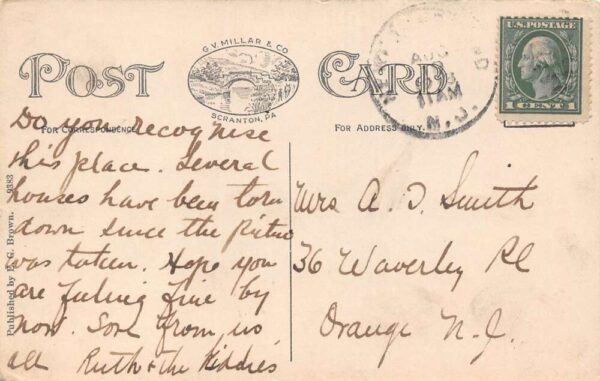 POST CARD
G.V. MILLAR & CO
SCRANTON, PA
FOR CORRESPONDENCE
FOR ADDRESS ONLY.
U.S. POSTAGE
1 CENT 1
AUG
11 AM
N.J.
Published by E. G. Brown. 9383
Do you recognise
this place. Several
houses have been torn
down since the Pictue
was taken. Hope you
are feeling fine by
now. Love from us
all Ruth & the kiddies
Mrs A. D. Smith
36 Waverley Pl
Orange N-J.